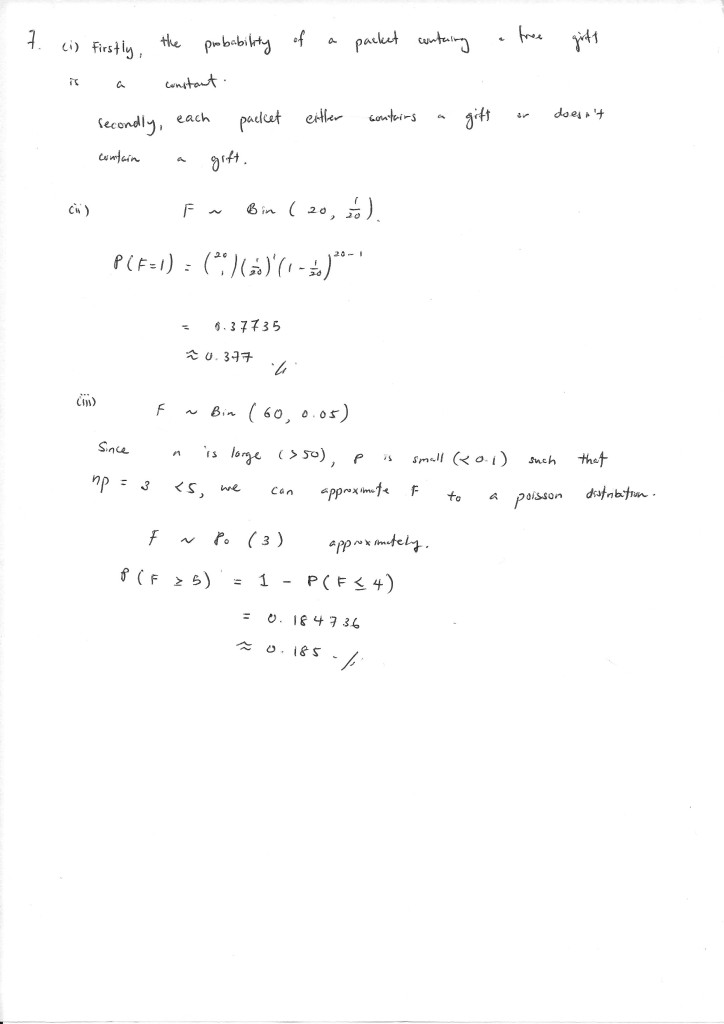 7. (i) Firstly, the probability of a packet containing a free gift
is a constant.
Secondly, each packet either contains a gift or doesn't
contain a gift.
(ii) F ~ Bin ( 20, 1/20 ).
P(F=1) = (20 1)(1/20)^1(1 - 1/20)^20-1
= 0.37735
≈ 0.377 //
(iii) F ~ Bin ( 60, 0.05)
Since n is large (>50), p is small (<0.1) such that
np = 3 <5, we can approximate F to a poisson distribution.
F ~ Po (3) approximately.
P(F ≥ 5) = 1 - P(F ≤ 4)
= 0.184736
≈ 0.185 //